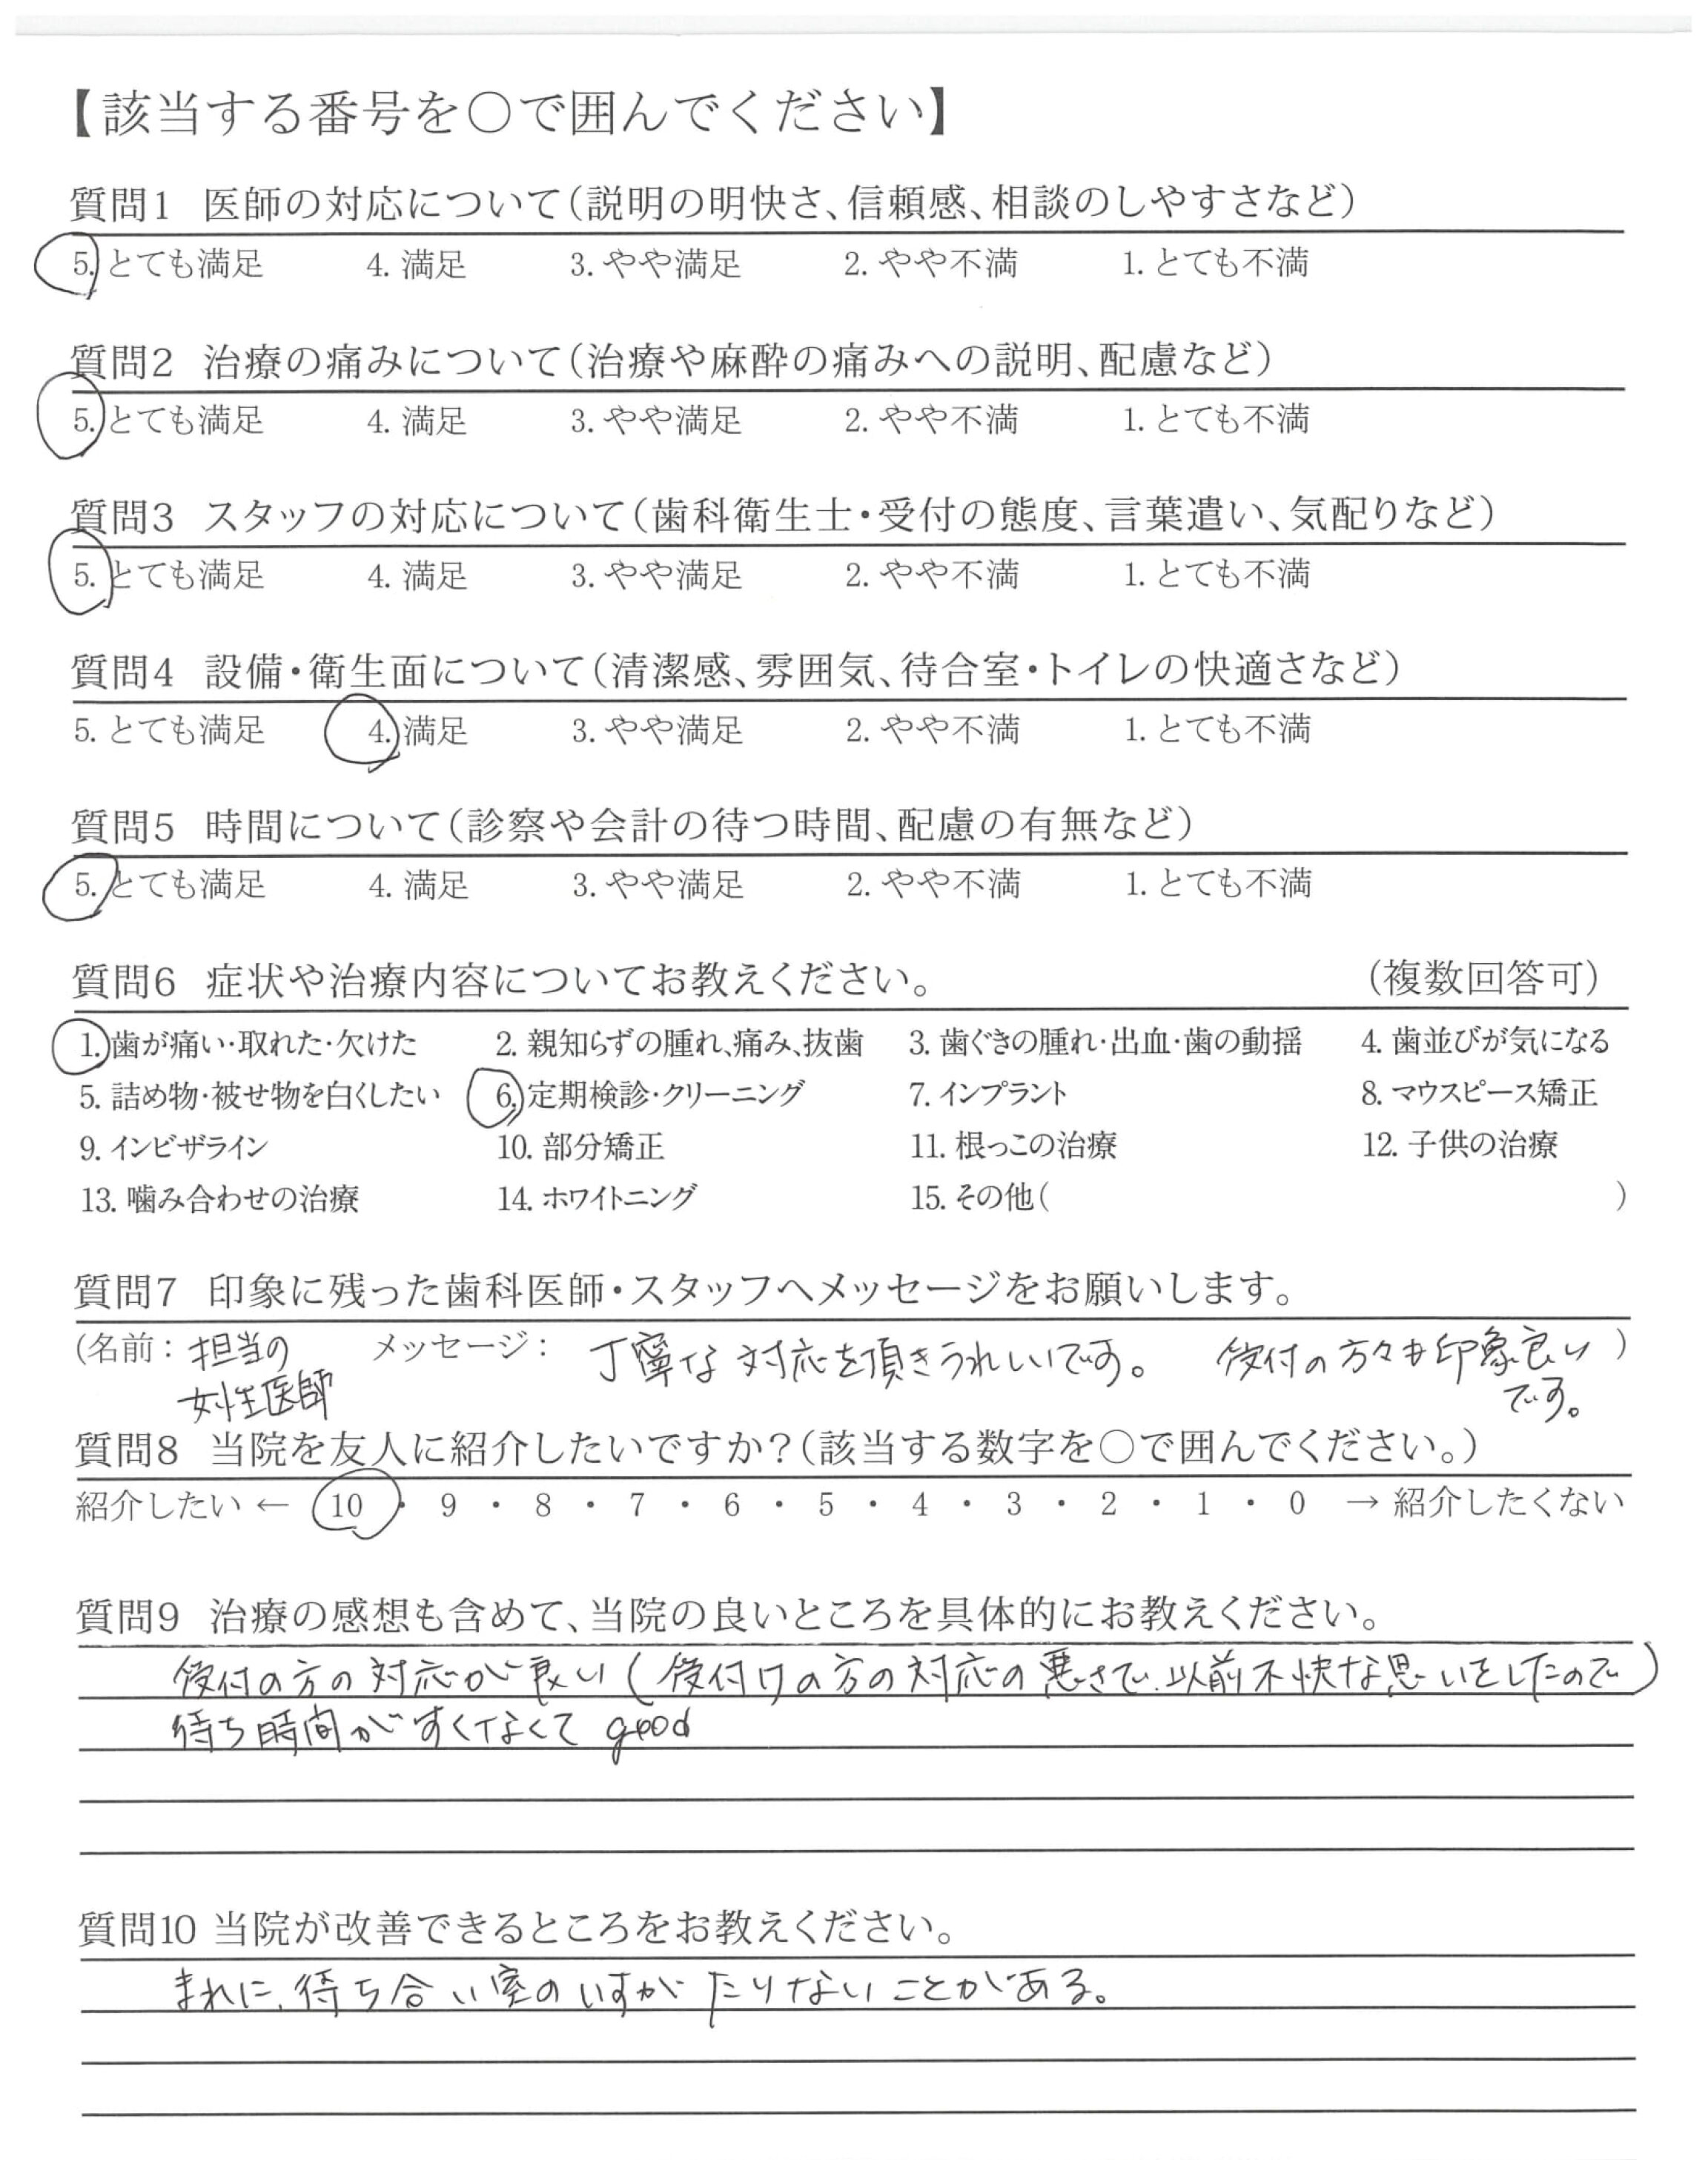 【該当する番号を〇で囲んでください】
質問1 医師の対応について(説明の明快さ、信頼感、相談のしやすさなど)
5. とても満足 4. 満足 3. やや満足 2. やや不満 1. とても不満
質問2 治療の痛みについて(治療や麻酔の痛みへの説明、配慮など)
5. とても満足 4. 満足 3. やや満足 2. やや不満 1. とても不満
質問3 スタッフの対応について(歯科衛生士・受付の態度、言葉遣い、気配りなど)
5. とても満足 4. 満足 3. やや満足 2. やや不満 1. とても不満
質問4 設備・衛生面について(清潔感、雰囲気、待合室・トイレの快適さなど)
5. とても満足 4. 満足 3. やや満足 2. やや不満 1. とても不満
質問5 時間について(診察や会計の待つ時間、配慮の有無など)
5. とても満足 4. 満足 3. やや満足 2. やや不満 1. とても不満
質問6 症状や治療内容についてお教えください。 (複数回答可)
1. 歯が痛い・取れた・欠けた 2. 親知らずの腫れ、痛み、抜歯 3. 歯ぐきの腫れ・出血・歯の動揺 4. 歯並びが気になる
5. 詰め物・被せ物を白くしたい 6. 定期検診・クリーニング 7. インプラント 8. マウスピース矯正
9. インビザライン 10. 部分矯正 11. 根っこの治療 12. 子供の治療
13. 噛み合わせの治療 14. ホワイトニング 15. その他( )
質問7 印象に残った歯科医師・スタッフへメッセージをお願いします。
(名前: 担当の メッセージ: 丁寧な対応を頂きうれしいです。 受付の方々も印象良い )
女性医師 です。
質問8 当院を友人に紹介したいですか?(該当する数字を〇で囲んでください。)
紹介したい ← 10 ・ 9 ・ 8 ・ 7 ・ 6 ・ 5 ・ 4 ・ 3 ・ 2 ・ 1 ・ 0 → 紹介したくない
質問9 治療の感想も含めて、当院の良いところを具体的にお教えください。
受付の方の対応が良い(受付けの方の対応の悪さで、以前不快な思いをしたので)
待ち時間がすくなくて good
質問10 当院が改善できるところをお教えください。
まれに、待ち合い室のいすがたりないことがある。